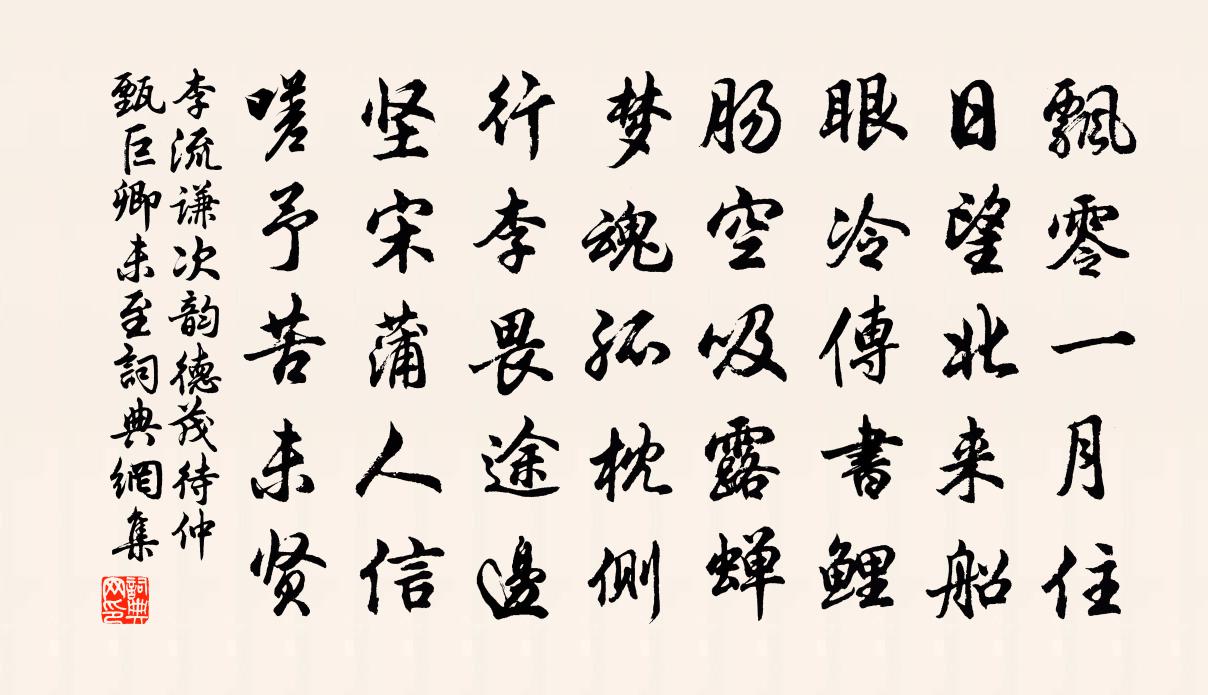 飄零一月住
日望北来船
眼冷傳書鲤
肠空吸露蝉
梦魂孤枕側
行李畏途邊
坚宋蒲人信
嗟予苦未贤
李流谦次韵德茂待仲
甄巨卿未至詞典網集
詞典网印